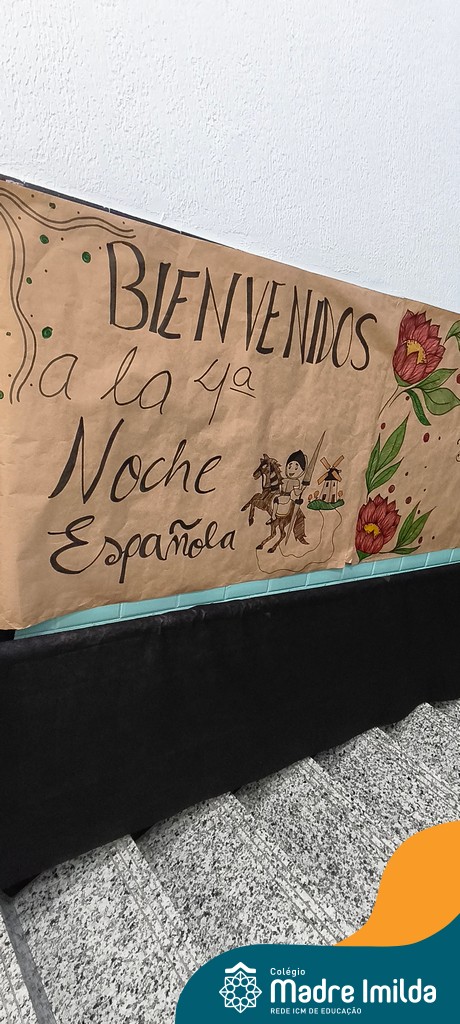 BIENVENIDOS
a la 4ª
Noche
Española
Colégio
Madre Imilda
REDE ICM DE EDUCAÇÃO